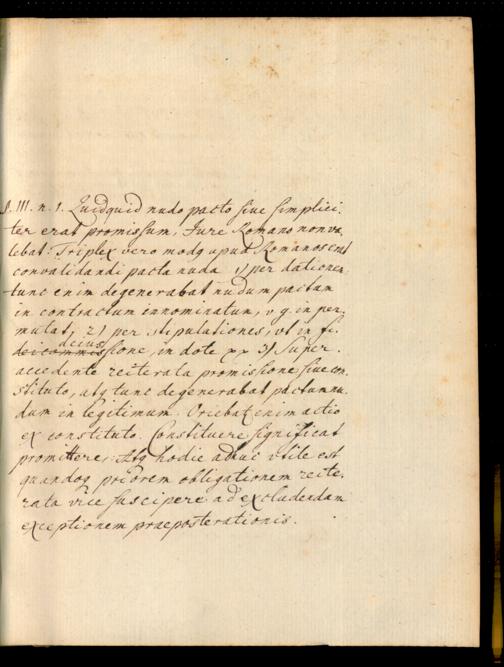 §. III. n. 1. Quidquid nudo pacto sive simplici-
ter erat promissum, Jure Romano non va-
lebat. Triplex vero modg apud Romanos erat
convalidandi pacta nuda 1) per dationes
tunc enim degenerabat nudum pactum
in contractum innominatum, v g. in per-
mutat; 2) per stipulationes, ut in fi-
deicommissione, in dote 3) Super-
accedente reiterata promissione sive con-
stituto, atq tunc degenerabat pactum nu-
dum in legitimum. Oriebat enim actio
ex constituto. Constituere significat
promittere, Atq hodie adhuc utile est
quandoq priorem obligationem reite-
rata vice suscipere ad excludendam
exceptionem praeposterationis.